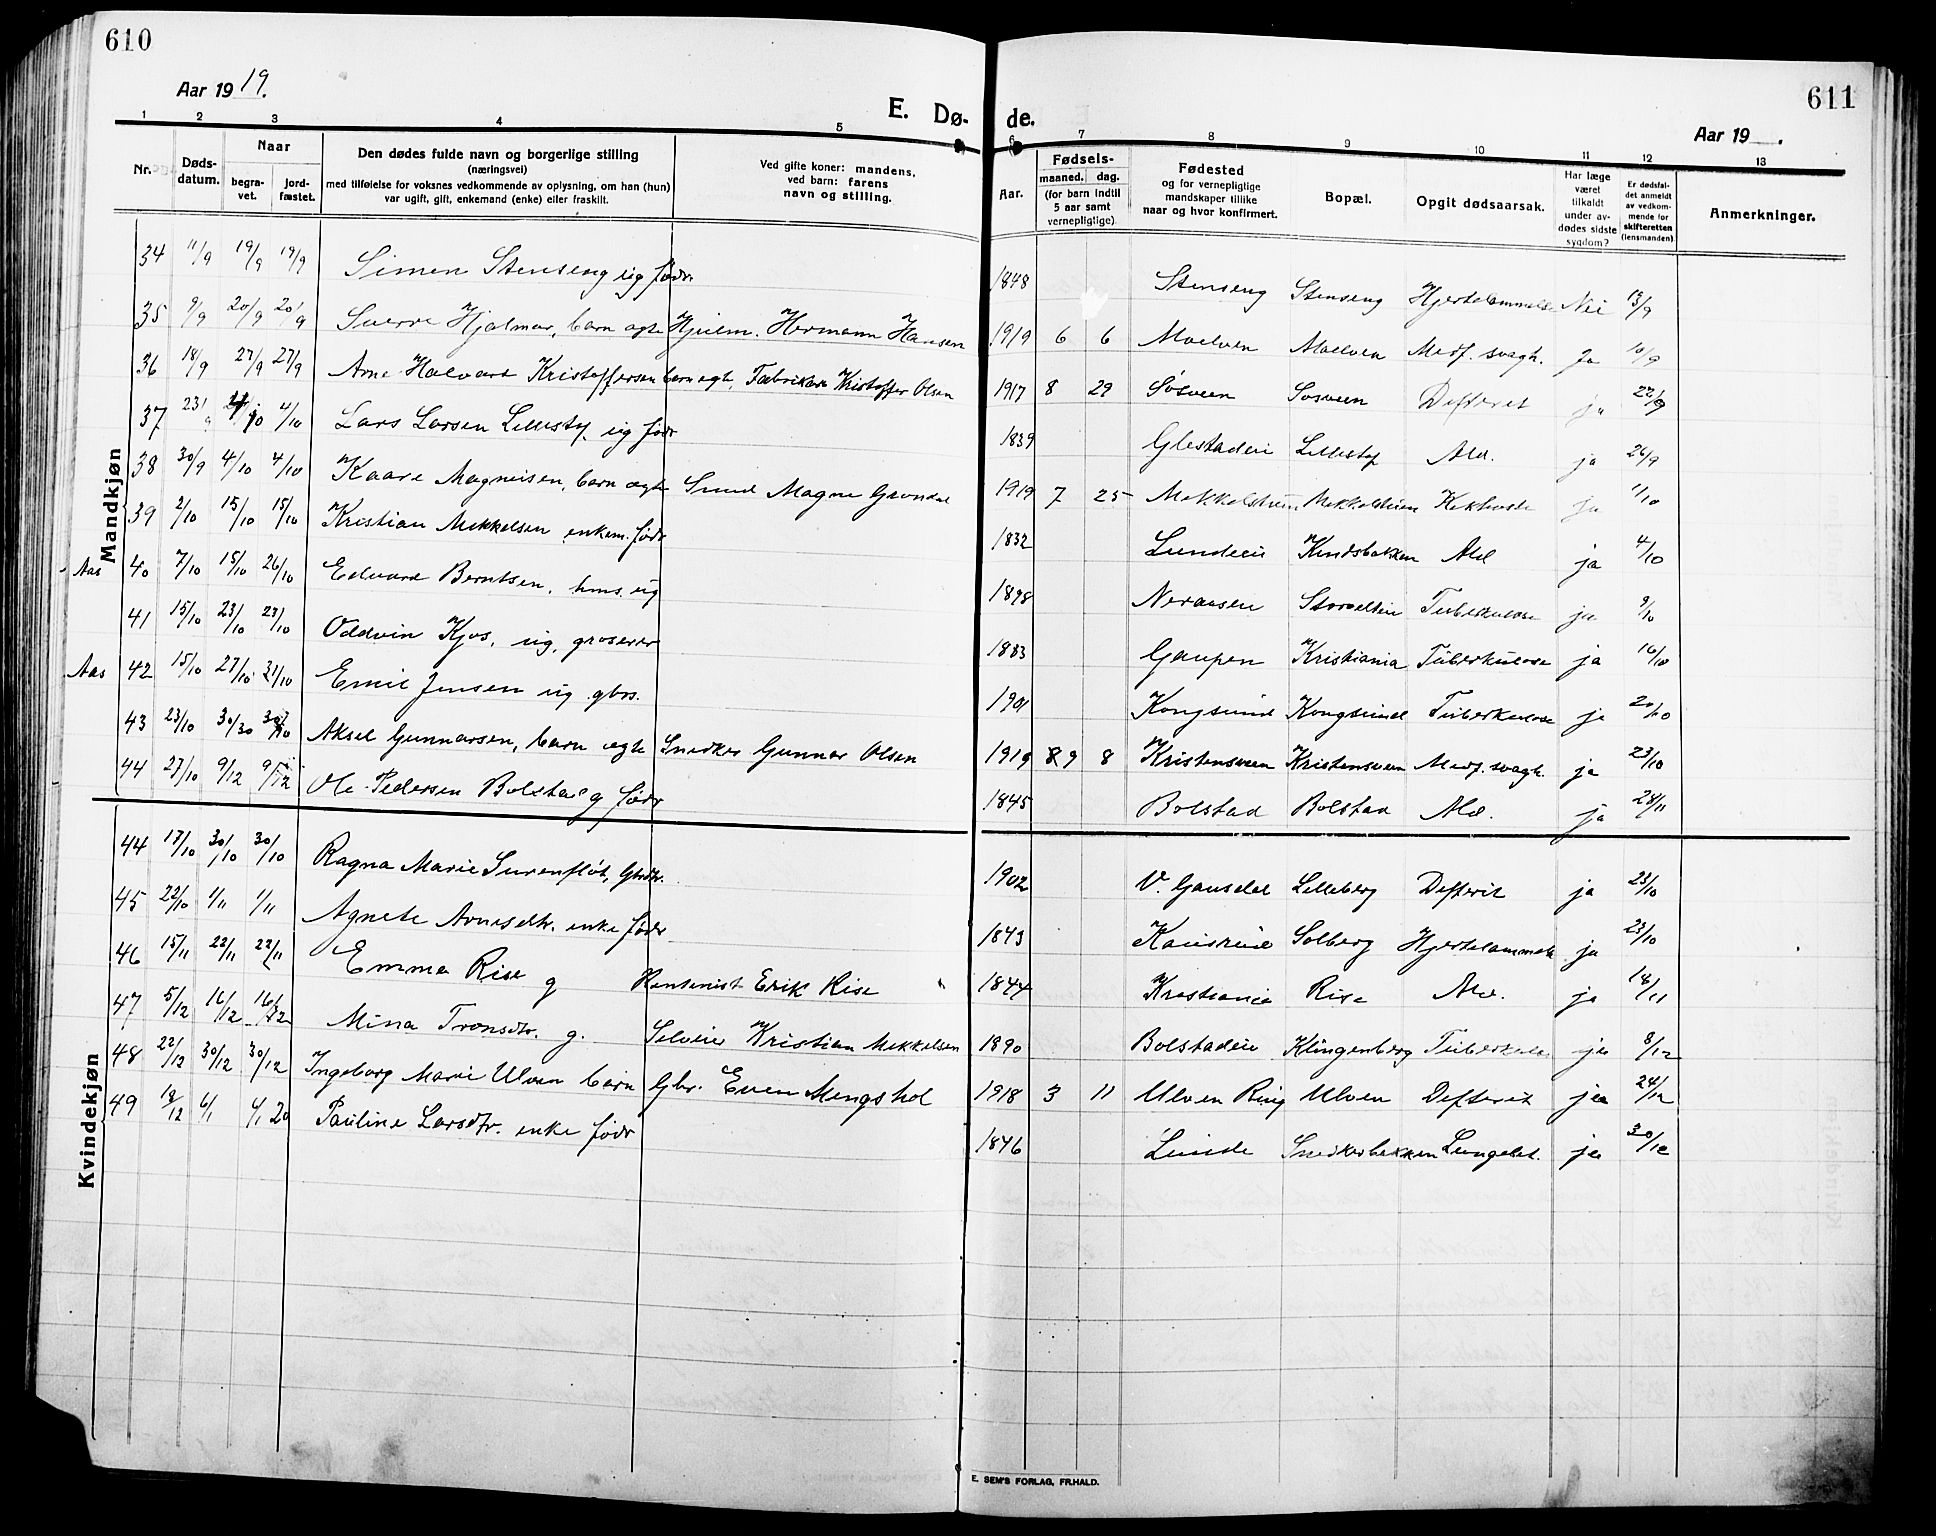 610
611
Aar 1919.
E. Dø-
de.
Aar 19 .
1 2 3 4 5 6 7 8 9 10 11 12 13
Nr.
Dødsdatum.
Naar
begravet.
jordfæstet.
Den dødes fulde navn og borgerlige stilling
(næringsvei)
med tilføielse for voksnes vedkommende av oplysning, om han (hun)
var ugift, gift, enkemand (enke) eller fraskilt.
Ved gifte koner: mandens,
ved barn: farens
navn og stilling.
Aar.
Fødsels-
maaned. dag.
(for barn indtil
5 aar samt
vernepligtige)
Fødested
og for vernepligtige
mandskaper tillike
naar og hvor konfirmert.
Bopæl.
Opgit dødsaarsak.
Har læge
været
tilkaldt
under av-
dødes sidste
sygdom?
Er dødsfal-
det anmeldt
av vedkom-
mende for
skifteretten
(lensmanden)
Anmerkninger.
Mandkjøn
34 11/9 19/9 19/9 Simen Stenseng ug fødr. 1848 Stenseng Stenseng Hjertelammelse Nei 13/9
35 9/9 20/9 20/9 Sverre Hjalmar, barn egte Hjulm. Hermann Hansen 1919 6 6 Moelven Moelven Medf. svagh. Ja 10/9
36 18/9 27/9 27/9 Arne Halvard Kristoffersen barn egt. Fabrikarb Kristoffer Olsen 1917 8 29 Sosveen Sosveen Defterit ja 22/9
37 23/9 4/10 4/10 Lars Larsen Lillestf. ug fødr 1839 Glestadeie Lillestf Ald. ja 26/9
38 30/9 4/10 4/10 Kaare Magnusen, barn egte Smed Magne Grøndal 1919 7 25 Mekkelstuen Mekkelstuen Kikhoste ja 1/10
39 2/10 15/10 15/10 Kristian Mekkelsen enkem. fødr 1832 Lundeeie Kindsbakken Ald ja 4/10
Aas 40 7/10 15/10 26/10 Edvard Berntsen, hms. ug 1898 Neraasen Storvelteie Tuberkulose ja 9/10
41 15/10 23/10 23/10 Oddvin Kjos, ug, groserer 1883 Gaupen Kristiania Tuberkulose ja 16/10
Aas 42 15/10 27/10 31/10 Emil Jensen ug gbrs. 1901 Kongsund Kongsund Tuberkulose ja 20/10
43 23/10 30/30 30/10 Aksel Gunnarsen, barn egte Snedker Gunnar Olsen 1919 9 8 Kristensveen Kristensveen Medf. svagh. ja 23/10
44 27/10 9/12 9/12 Ole Pedersen Bolstad g fødr 1845 Bolstad Bolstad Ald. ja 28/11
Kvindekjøn
44 17/10 30/10 30/10 Ragna Marie Surenflót, Gbrdtr. 1902 V. Gausdal Lilleberg Defterit ja 23/10
45 22/10 1/11 1/11 Agnete Arnesdtr. enke fødr 1843 Solberg Hjertelammelse ja 23/10
46 15/11 22/11 22/11 Emma Rise g Pensionist Erik Rise 1844 Kristiania Rise Ald. ja 18/11
47 5/12 16/12 16/12 Mina Tronsdtr. g. Selveier Kristian Mekkelsen 1890 Bolstadeie Klingenberg Tuberkulose ja 8/12
48 22/12 30/12 30/12 Ingeborg Marie Ulven barn Gbr. Even Mengshol 1918 3 11 Ulven Ring Ulven Defterit ja 24/12
49 18/12 6/1 6/1 20 Pauline Larsdtr. enke fødr 1846 Lunde Snedkerbakken Lungebet. ja 30/12
E. SEM'S FORLAG, FR.HALD.